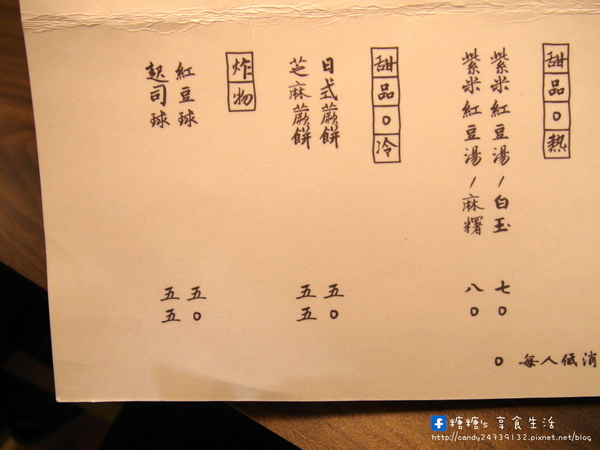 甜品○熱
紫米紅豆湯／白玉 七○
紫米紅豆湯／麻糬 八○
甜品○冷
日式蕨餅 五○
芝麻蕨餅 五五
炸物
紅豆球 五○
起司球 五五
○ 每人低消
糖糖's 享食生活
http://candy24739132.pixnet.net/blog